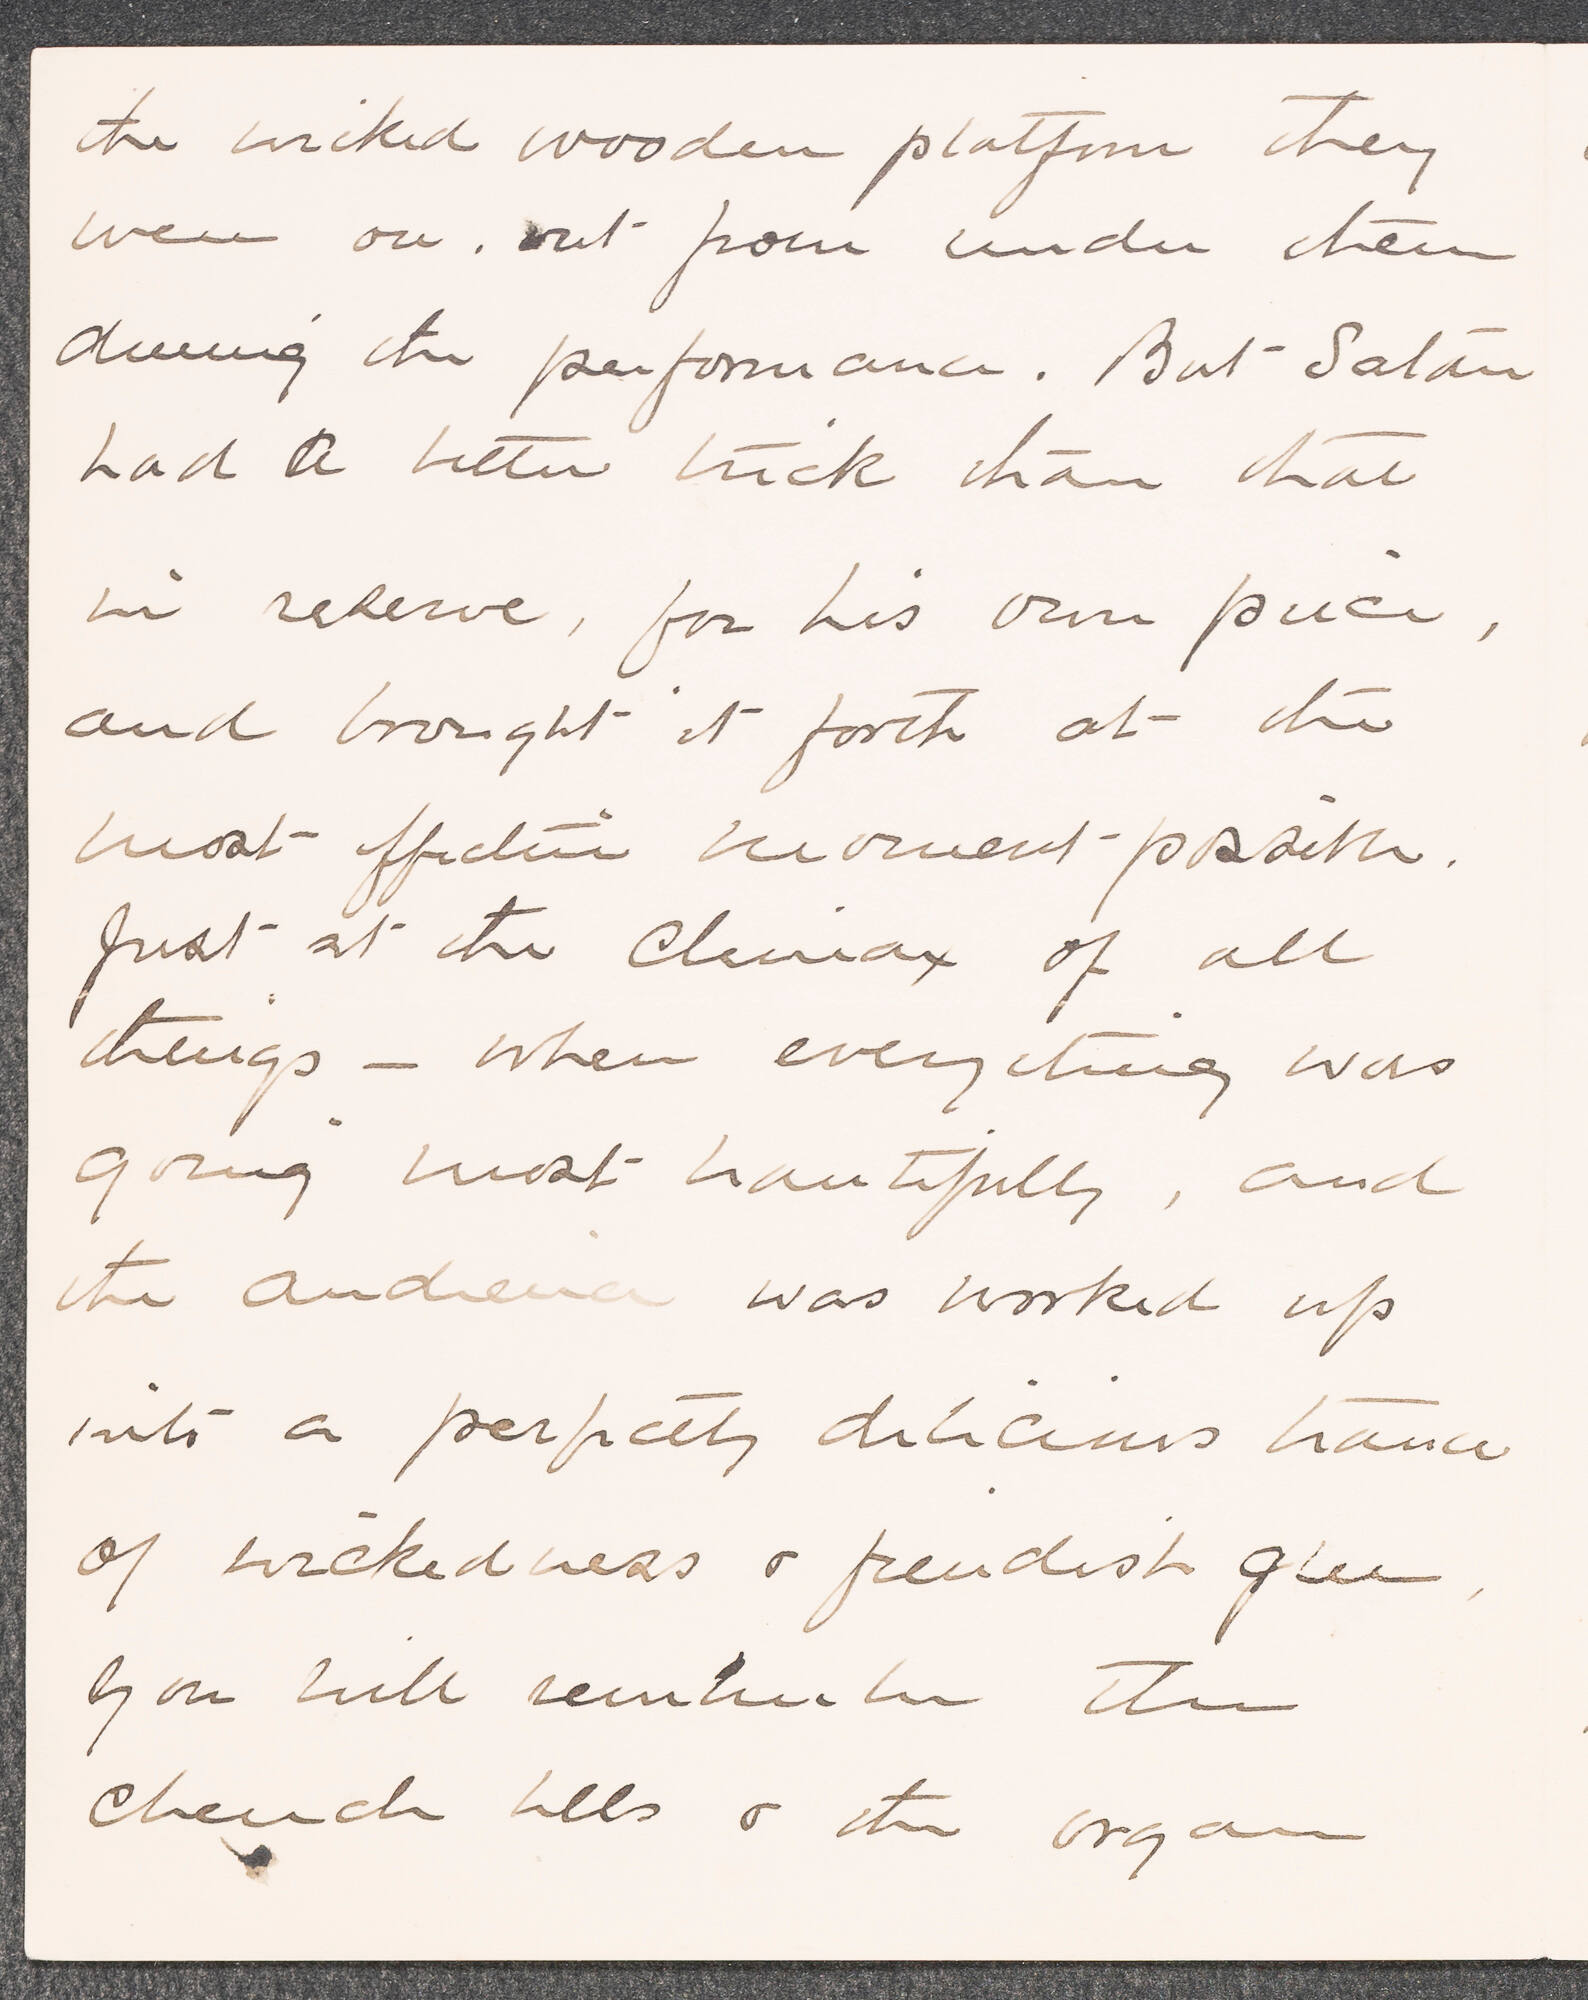 the wicked wooden platform they
were on. out from under them
during the performance. But Satan
had a better trick than that
in reserve, for his own piece,
and brought it forth at the
most effective moment possible.
Just at the Climax of all
things — when everything was
going most beautifully, and
the audience was worked up
into a perfectly delicious trance
of wickedness & fiendish glee,
you will remember the
Church bells & the organ